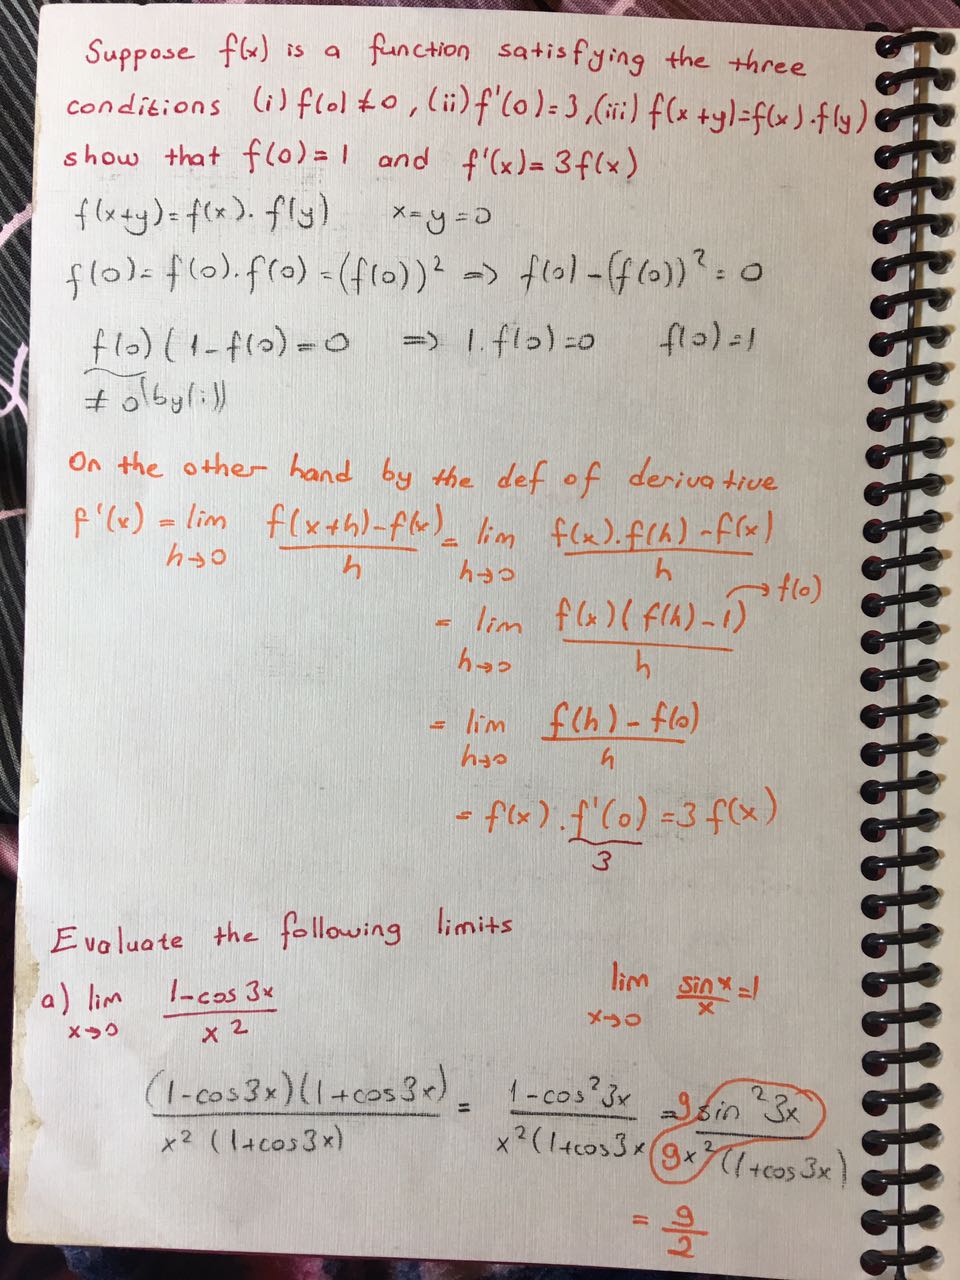 Suppose f(x) is a function satisfying the three
conditions (i) f(0) ≠ 0, (ii) f'(0) = 3, (iii) f(x+y) = f(x).f(y)
show that f(0) = 1 and f'(x) = 3f(x)
f(x+y) = f(x). f(y) x = y = 0
f(0) = f(0).f(0) = (f(0))² => f(0) - (f(0))² = 0
f(0) (1 - f(0) = 0 => 1. f(0) = 0 f(0) = 1
≠ 0 (by (i))
On the other hand by the def of derivative
f'(x) = lim h→0 (f(x+h) - f(x))/h = lim h→0 (f(x).f(h) - f(x))/h
= lim h→0 (f(x)(f(h) - 1))/h → f(0)
= lim h→0 (f(h) - f(0))/h
= f(x). f'(0) = 3 f(x)
3
Evaluate the following limits
a) lim x→0 (1 - cos 3x)/x² lim x→0 sin x/x = 1
(1 - cos3x)(1 + cos3x)/x² (1 + cos3x) = 1 - cos²3x/x² (1 + cos3x = 9 sin²3x/9x² (1 + cos3x)
= 9/2